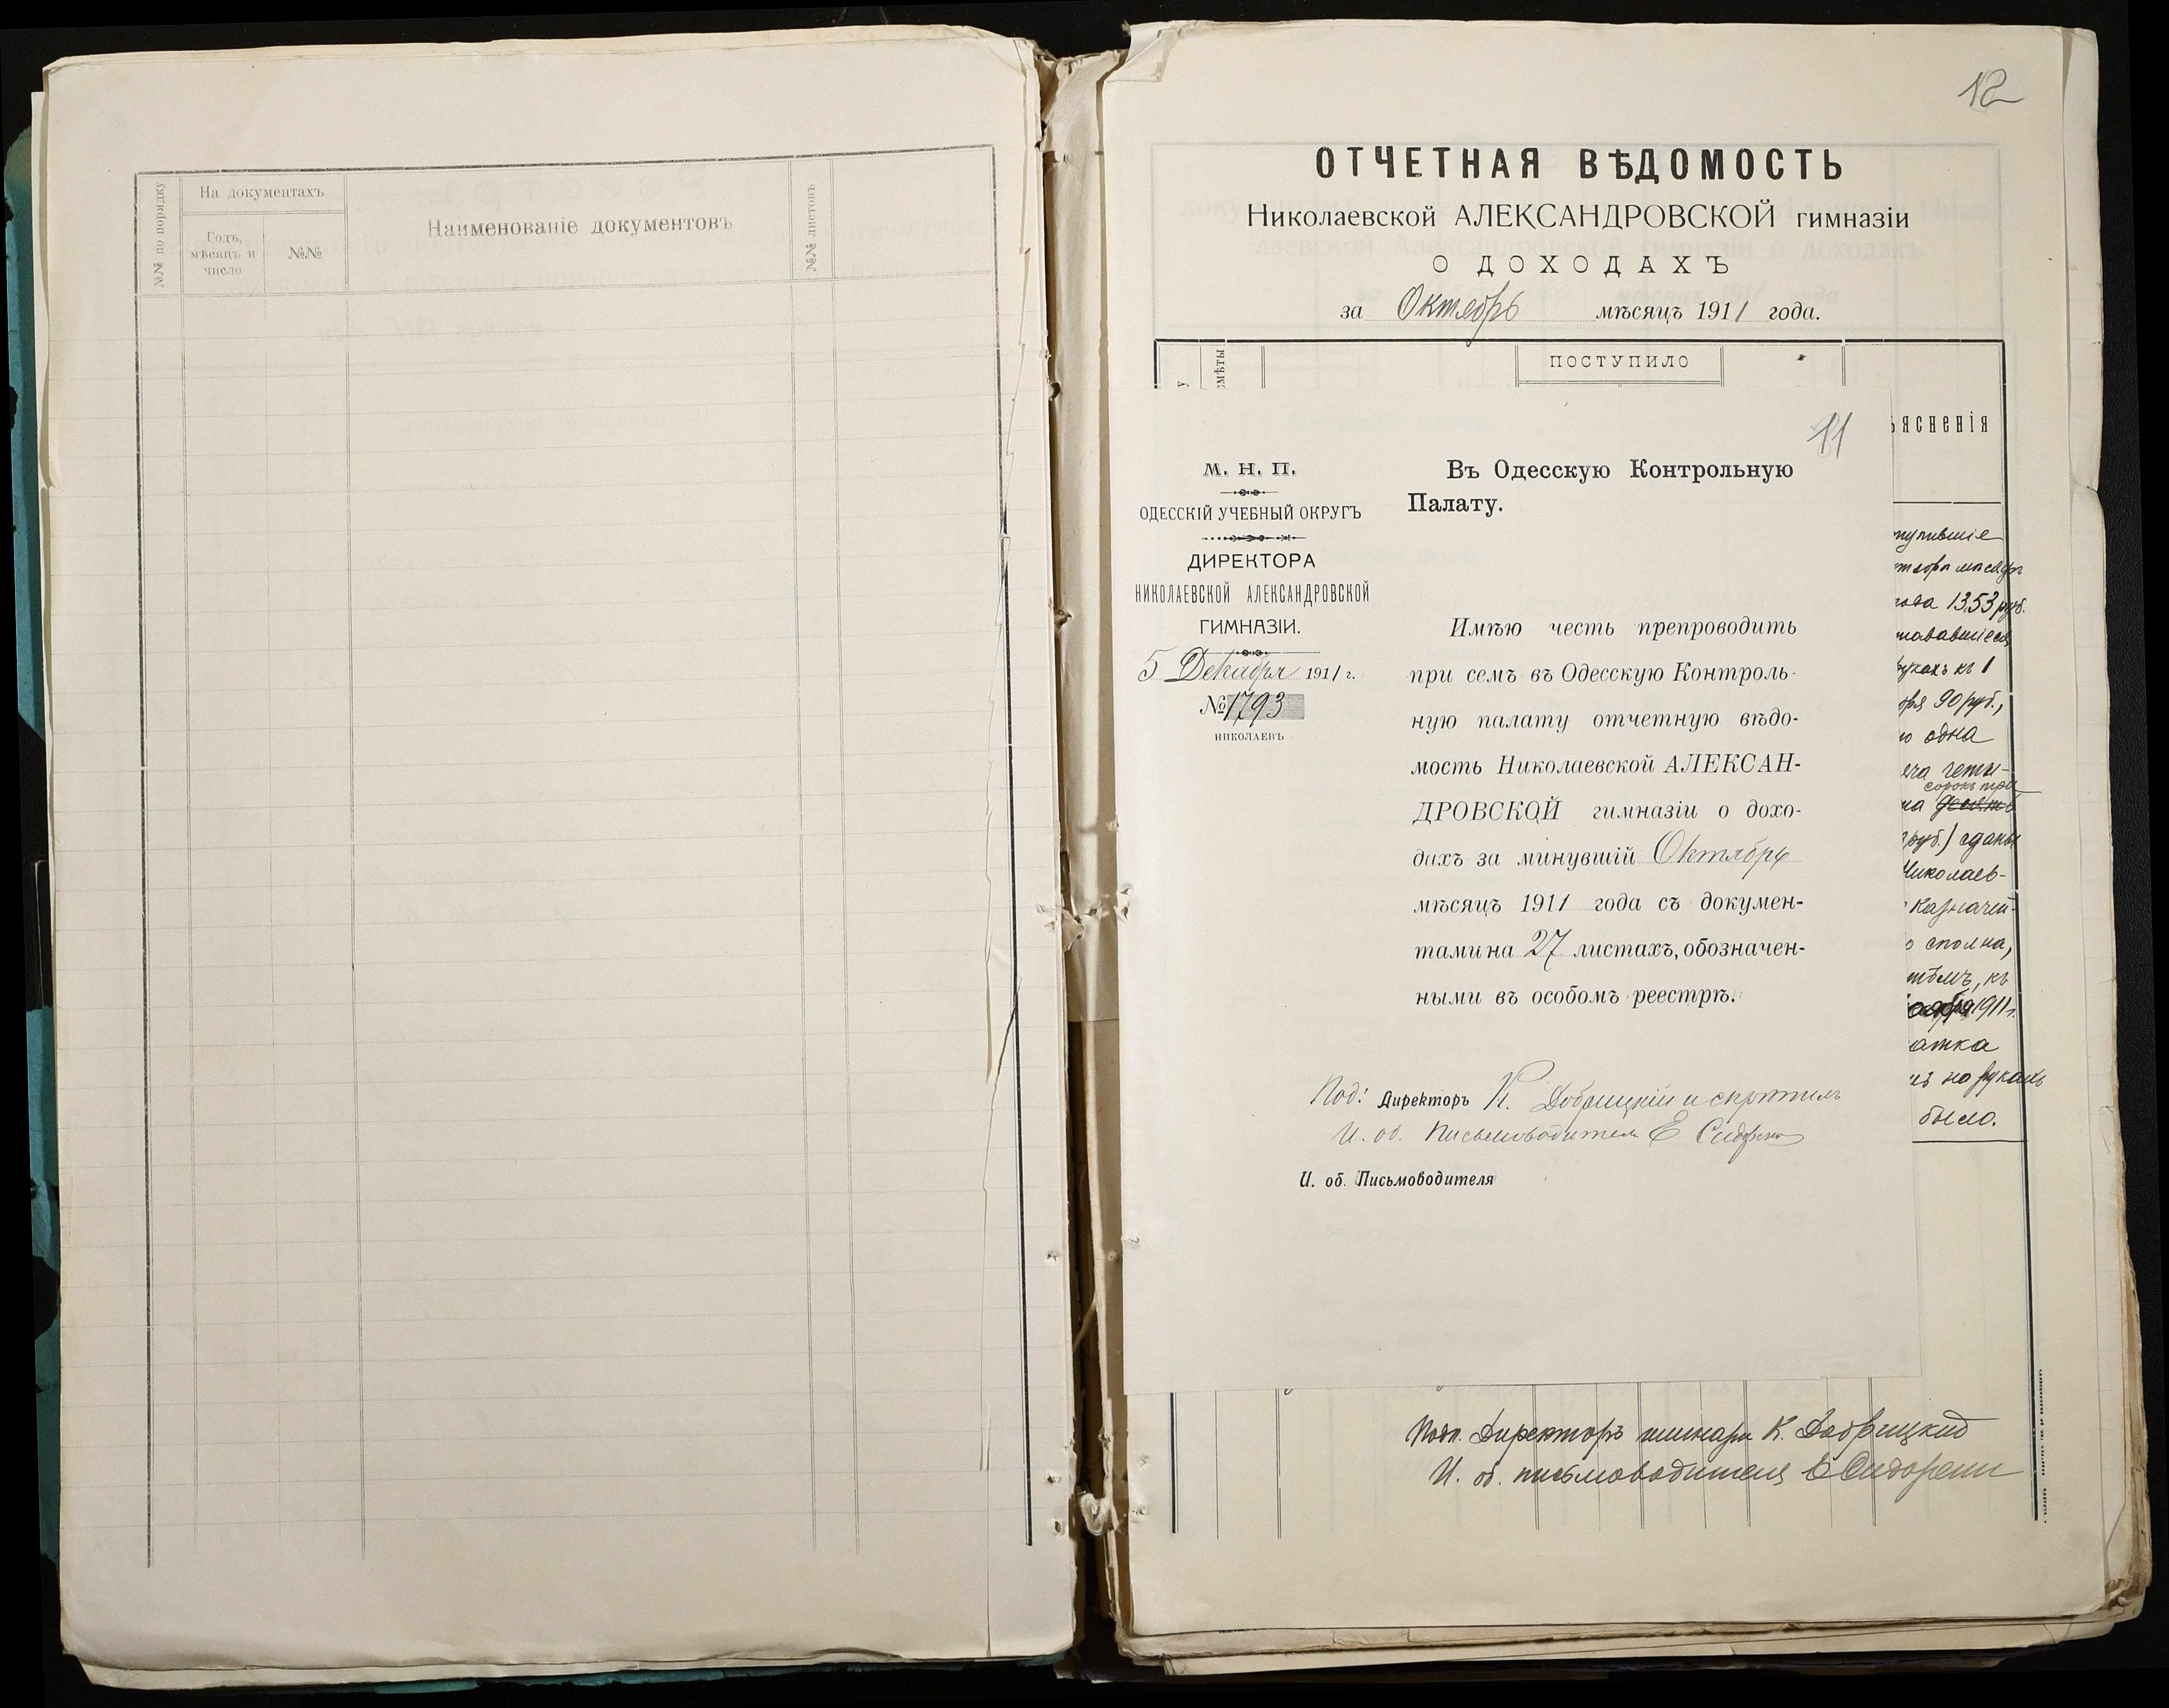 №№ по порядку
На документахъ
Годъ,
мѣсяцъ и
число
№№
Наименованіе документовъ
№№ листовъ
12
ОТЧЕТНАЯ ВѢДОМОСТЬ
Николаевской АЛЕКСАНДРОВСКОЙ гимназіи
О ДОХОДАХЪ
за Октябрь мѣсяцъ 1911 года.
смѣты
ПОСТУПИЛО
11
М. Н. П.
ОДЕССКІЙ УЧЕБНЫЙ ОКРУГЪ
ДИРЕКТОРА
НИКОЛАЕВСКОЙ АЛЕКСАНДРОВСКОЙ
ГИМНАЗІИ.
5 Декабря 1911 г.
№ 1793
НИКОЛАЕВЪ
Въ Одесскую Контрольную
Палату.
Имѣю честь препроводить
при семъ въ Одесскую Контроль-
ную палату отчетную вѣдо-
мость Николаевской АЛЕКСАН-
ДРОВСКОЙ гимназіи о дохо-
дахъ за минувшій Октябрь
мѣсяцъ 1911 года съ докумен-
тами на 27 листахъ, обозначен-
ными въ особомъ реестрѣ.
Под: Директоръ К. Добрицкій и скрѣпилъ
И. об. Письмоводителя Е Сидоренко
И. об. Письмоводителя
ъясненія
тупившіе
года 1353 руб.
рукахъ къ 1
90 руб.,
о одна
сорокъ три
на десять
руб.) сданы
Николаев-
казначей-
о сполна,
къ
1911 г.
атка
на рукахъ
было.
Подп. Директоръ гимназіи К. Добрицкій
И. об. письмоводителя Е Сидоренко